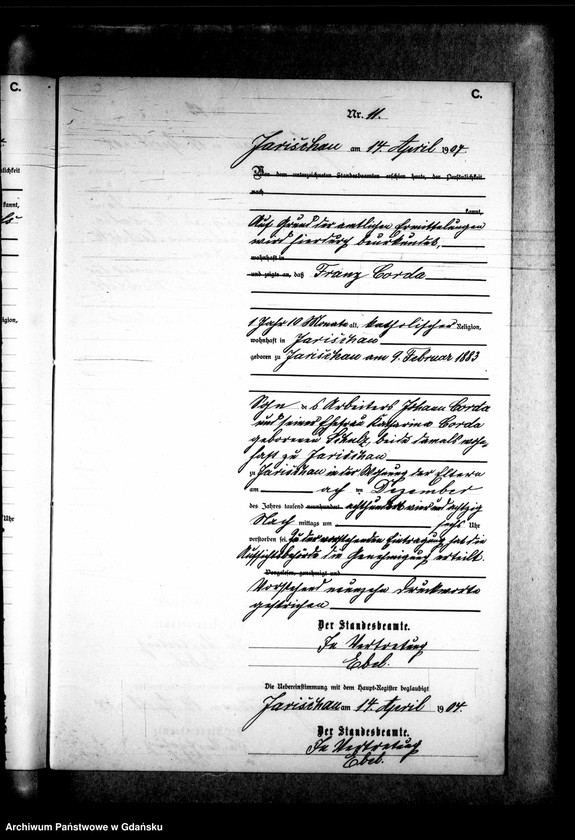 C.
C.
Nr. 11.
Jarischau am 14 April 1904
Vor dem unterzeichneten Standesbeamten erschien heute, der Persönlichkeit
nach
kannt,
Auf Grund der amtlichen Ermittelungen
wird hierdurch beurkundet,
wohnhaft in
und zeigte an, daß Franz Corda
1 Jahr 10 Monate alt, katholischer Religion,
wohnhaft in Jarischau
geboren zu Jarischau am 9. Februar 1883
Sohn des Arbeiters Johann Corda
und seiner Ehefrau Katharina Corda
geborenen Schulz, beide damals wohn-
haft zu Jarischau
zu Jarischau in der Wohnung der Eltern
am ten Dezember
des Jahres tausend neunhundert achthundert vier und achtzig
Nach mittags um sechs Uhr
verstorben sei. Zu der vorstehenden Eintragung hat die
Aufsichtsbehörde die Genehmigung erteilt.
Vorgelesen, genehmigt und
Vorstehend neunzehn Druckworte
gestrichen
Der Standesbeamte.
In Vertretung
Ebel.
Die Uebereinstimmung mit dem Haupt-Register beglaubigt
Jarischau am 14. April 1904.
Der Standesbeamte.
In Vertretung
Ebel.
kannt,
Uhr
Archiwum Państwowe w Gdańsku